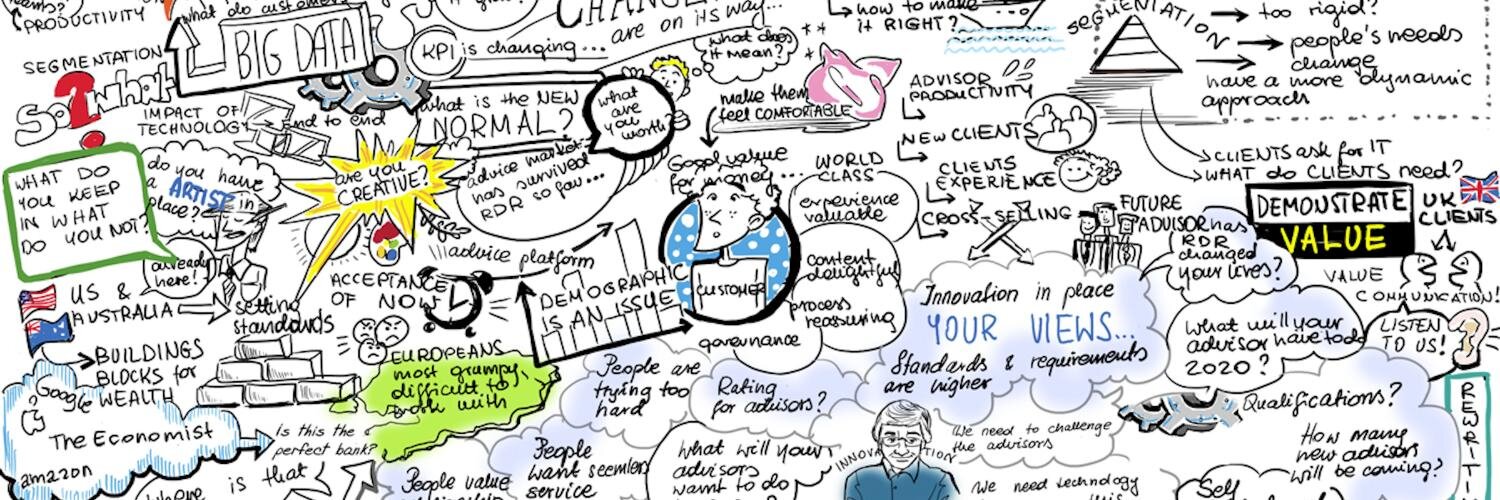 PRODUCTIVITY
what do customers
BIG DATA
SEGMENTATION
So what
?
IMPACT OF
TECHNOLOGY
end to end
KPI is changing...
are on its way...
what does
it mean?
how to make
it RIGHT?
SEGMENTATION
too rigid?
people's needs
change
have a more dynamic
approach
what is the NEW
NORMAL?
what
are
you
worth?
make them
feel COMFORTABLE
ADVISOR
PRODUCTIVITY
NEW CLIENTS
CLIENTS
EXPERIENCE
CROSS-SELLING
CLIENTS ask for IT
WHAT do CLIENTS need?
WHAT DO
YOU KEEP
IN WHAT
DO YOU NOT?
do you have
a ARTIST in
place?
already
here!
are you
CREATIVE?
advice market
has survived
RDR so far...
Good value
for money...
WORLD
CLASS
experience
valuable
content
delightful
process
reassuring
governance
CUSTOMER
advice platform
DEMOGRAPHIC
IS AN ISSUE
ACCEPTANCE
OF NOW
US &
AUSTRALIA
setting
standards
BUILDINGS
BLOCKS for
WEALTH
Google
The Economist
amazon
Is this the
perfect bank?
is that
EUROPEANS
most grumpy,
difficult to
work with
People are
trying too
hard
Rating
for advisors?
People
want seemless
service
People value
What will your
advisors
want to do
Innovation in place
YOUR VIEWS...
Standards & requirements
are higher
INNOVATION
We need to challenge
the advisors
We need technology
FUTURE
ADVISOR
has
RDR
changed
your lives?
DEMONSTRATE
VALUE
UK
CLIENTS
VALUE
COMMUNICATION!
LISTEN
TO US!
What will your
advisor have to do
2020?
Qualifications?
How many
new advisors
will be coming?
Self
REWRIT